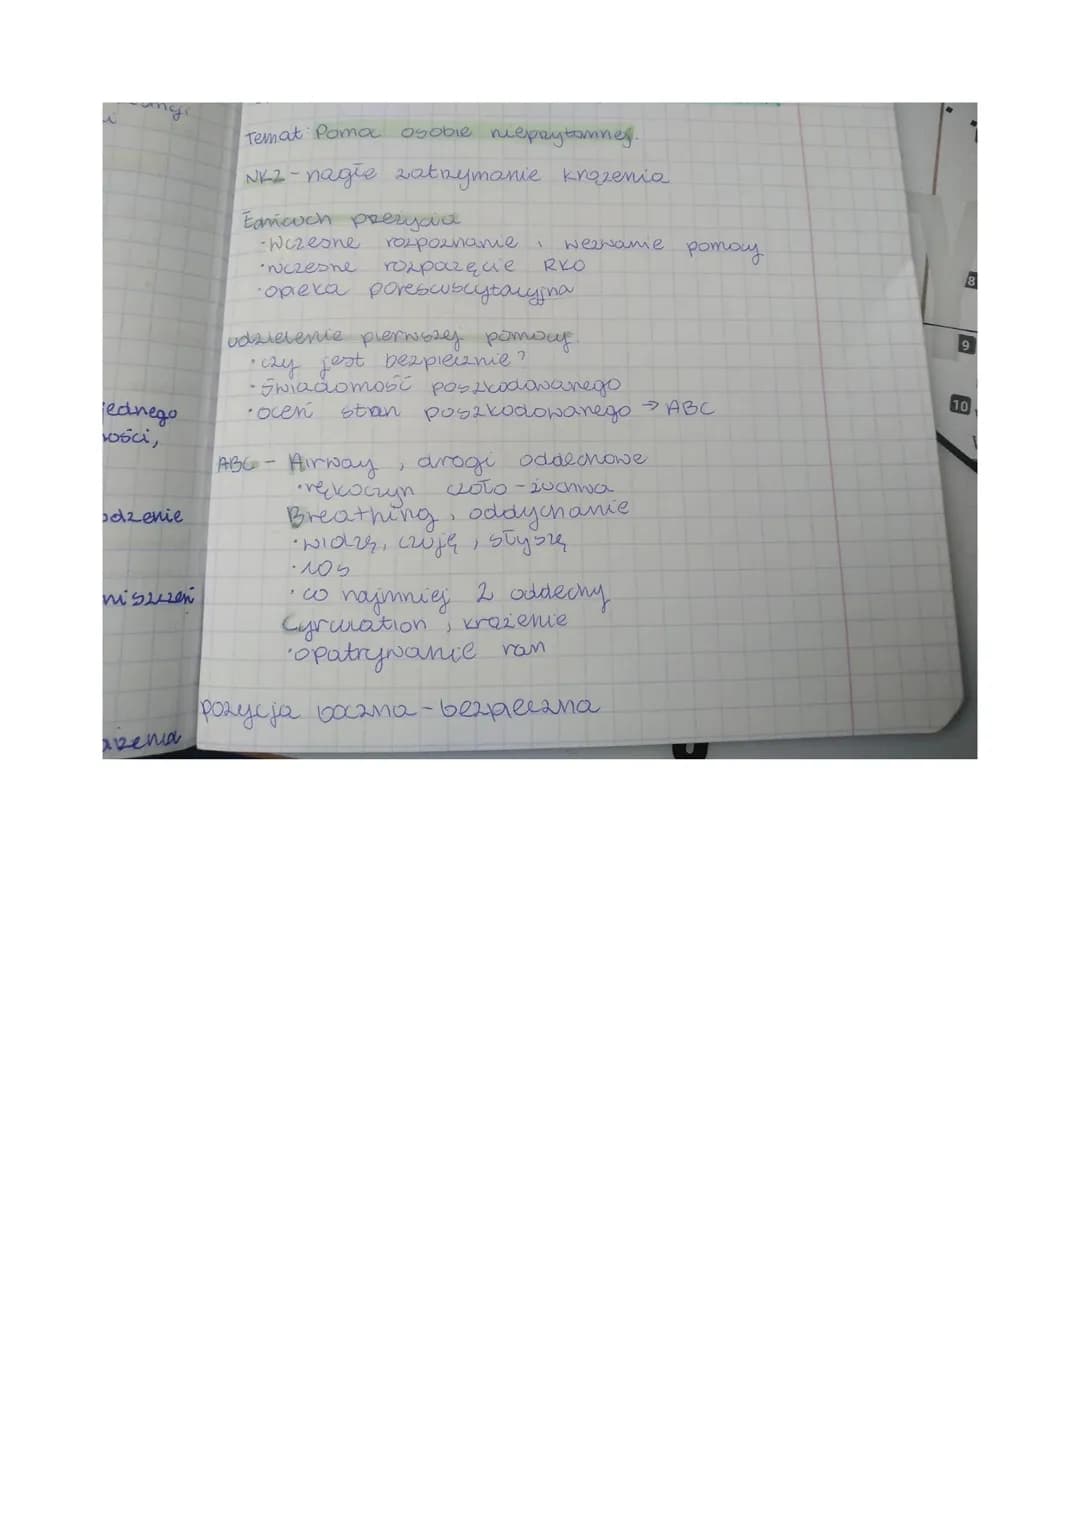 Temat: Pomoc osobie nieprzytomnej.
NKZ - nagłe zatrzymanie krążenia
Łańcuch przeżycia
·Wczesne rozpoznanie, wezwanie pomocy
·wczesne rozpaczęcie RKO
·opieka poresuscytacyjna
udzielenie pierwszej pomocy
·czy jest bezpiecznie?
·świadomość poszkodowanego
·oceń stan poszkodowanego → ABC
ABC - Airway, drogi oddechowe
·rękoczyn czoło - żuchwa
Breathing, oddychanie
·widzę, czuję, słyszę
·10s
·co najmniej 2 oddechy
Cyrculation, krążenie
·opatrywanie ran
pozycja boczna - bezpieczna
jednego
ności,
odzenie
niszczeń
ażenia
8
9
10